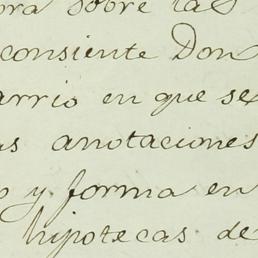 bra sobre las
consiente Don
arrio en que se
as anotaciones
o y forma en
hipotecas de